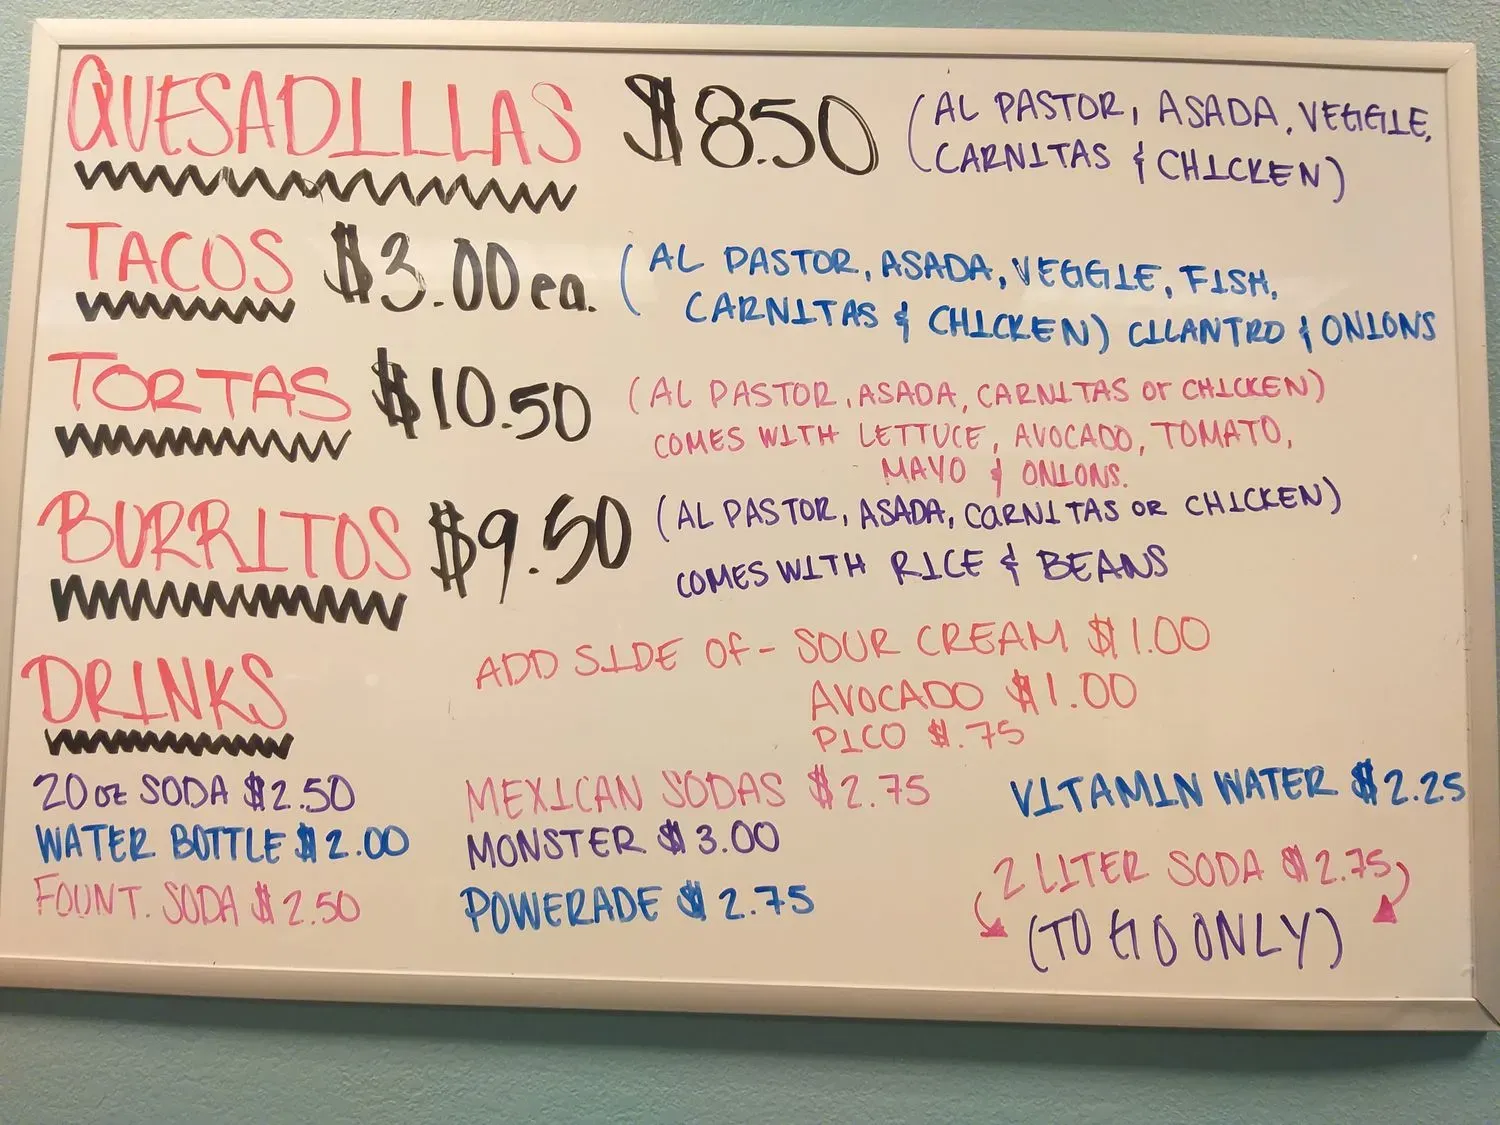 QUESADILLAS $8.50 (AL PASTOR, ASADA, VEGGIE,
CARNITAS & CHICKEN)
TACOS $3.00 ea. (AL PASTOR, ASADA, VEGGIE, FISH,
CARNITAS & CHICKEN) CILANTRO & ONIONS
TORTAS $10.50 (AL PASTOR, ASADA, CARNITAS or CHICKEN)
COMES WITH LETTUCE, AVOCADO, TOMATO,
MAYO & ONIONS.
BURRITOS $9.50 (AL PASTOR, ASADA, CARNITAS OR CHICKEN)
COMES WITH RICE & BEANS
ADD SIDE OF - SOUR CREAM $1.00
AVOCADO $1.00
PICO $.75
DRINKS
20 oz SODA $2.50 MEXICAN SODAS $2.75 VITAMIN WATER $2.25
WATER BOTTLE $2.00 MONSTER $3.00 2 LITER SODA $2.75
FOUNT. SODA $2.50 POWERADE $2.75 (TO GO ONLY)